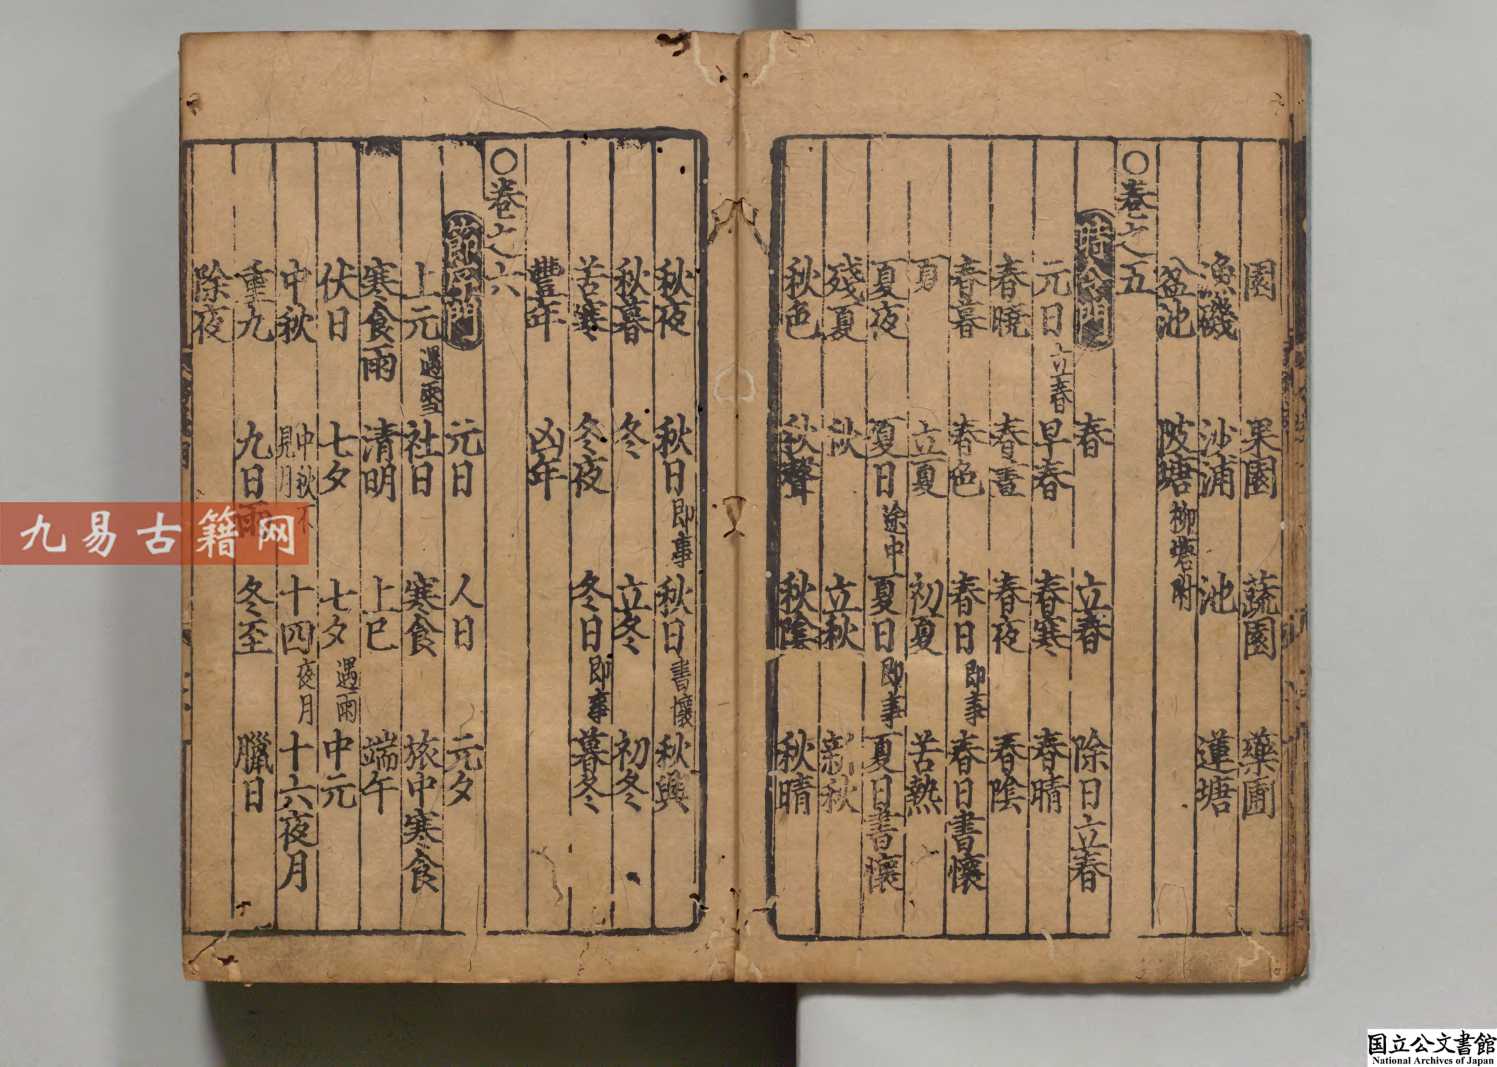 園 果園 蔬園 藥圃
漁磯 沙浦 池 蓮塘
盆池 陂塘 柳塘附
○卷之五
時令門 春 立春 除日立春
元日立春 早春 春寒 春晴
春曉 春晝 春夜 春陰
春暮 春色 春日即事 春日書懷
夏 立夏 初夏 苦熱
夏夜 夏日途中 夏日即事 夏日書懷
殘夏 秋 立秋 新秋
秋色 秋聲 秋陰 秋晴
秋夜 秋日即事 秋日書懷 秋興
秋暮 冬 立冬 初冬
苦寒 冬夜 冬日即事 暮冬
豐年 凶年
○卷之六
節序門 元日 人日 元夕
上元遇雪 社日 寒食 旅中寒食
寒食雨 清明 上巳 端午
伏日 七夕 七夕遇雨 中元
中秋 中秋不見月 十四夜月 十六夜月
重九 九日雨 冬至 臘日
除夜
九易古籍网
国立公文書館
National Archives of Japan